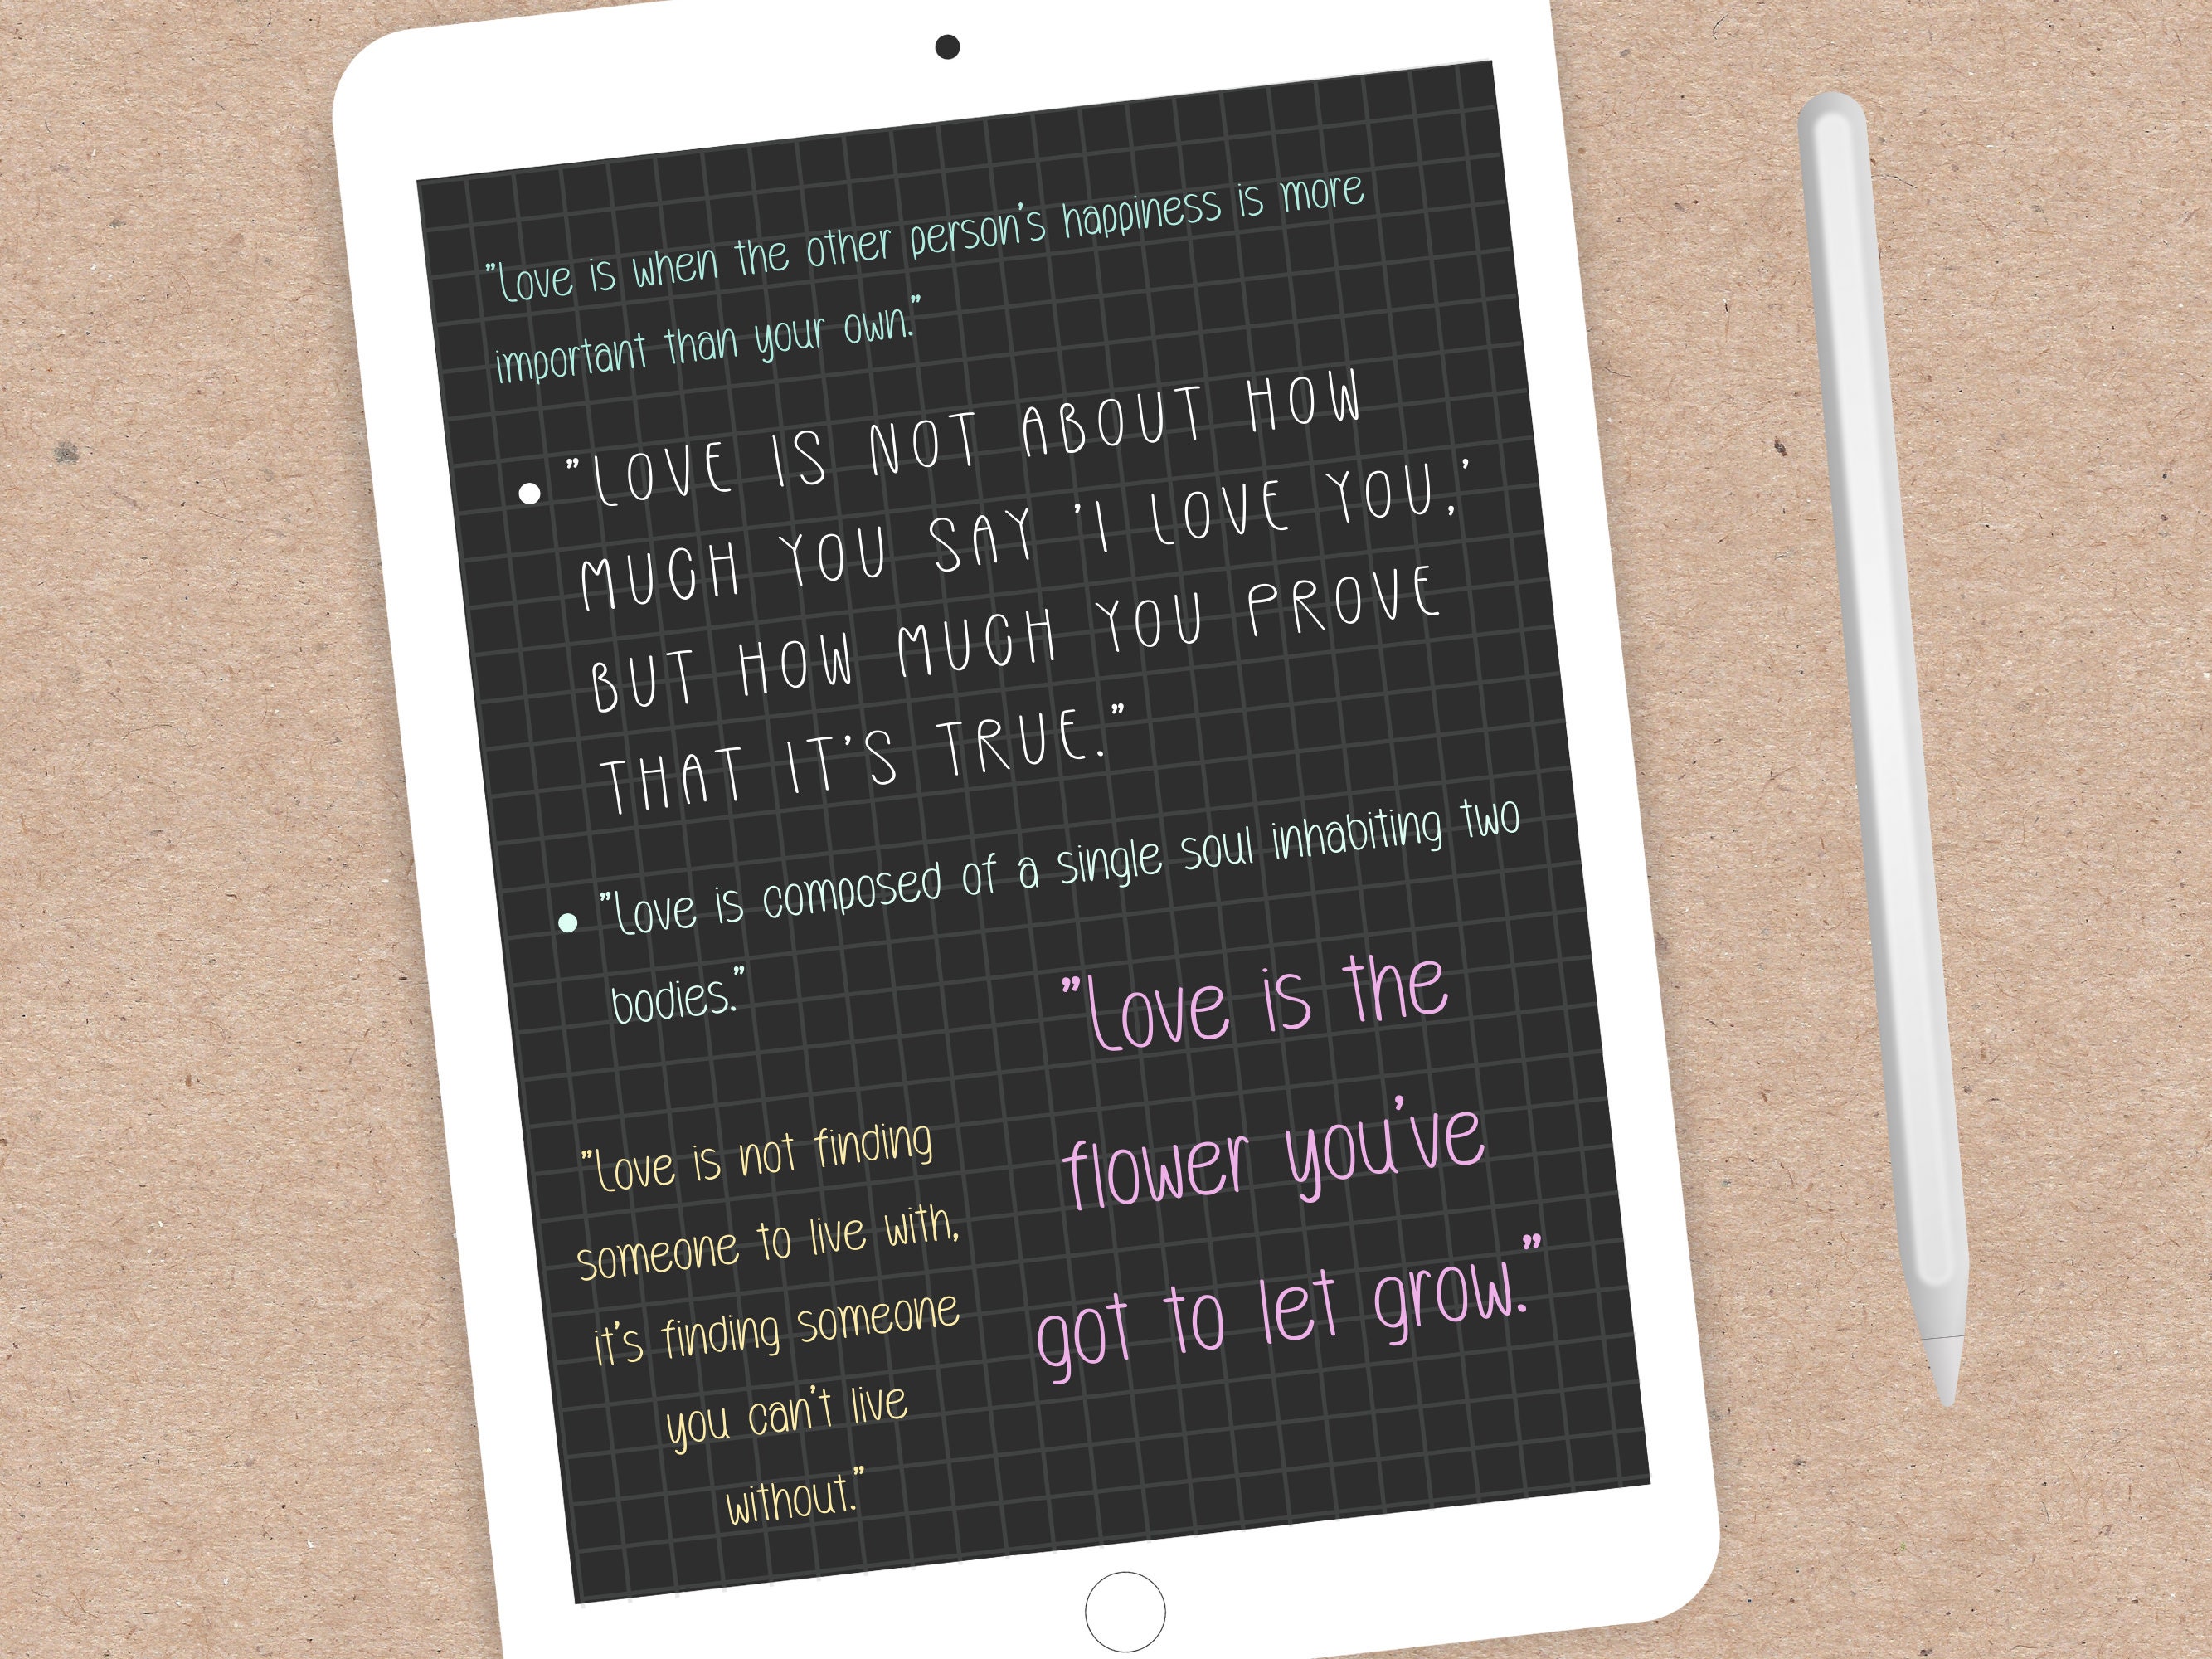 "Love is when the other person's happiness is more
important than your own."
"LOVE IS NOT ABOUT HOW
MUCH YOU SAY 'I LOVE YOU,'
BUT HOW MUCH YOU PROVE
THAT IT'S TRUE."
"Love is composed of a single soul inhabiting two
bodies."
"Love is not finding
someone to live with,
it's finding someone
you can't live
without."
"Love is the
flower you've
got to let grow."